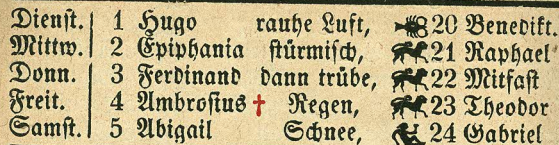 Dienst. 1 Hugo rauhe Luft, 20 Benedikt.
Mittw. 2 Epiphania stürmisch, 21 Raphael
Donn. 3 Ferdinand dann trübe, 22 Mitfast
Freit. 4 Ambrosius † Regen, 23 Theodor
Samst. 5 Abigail Schnee, 24 Gabriel